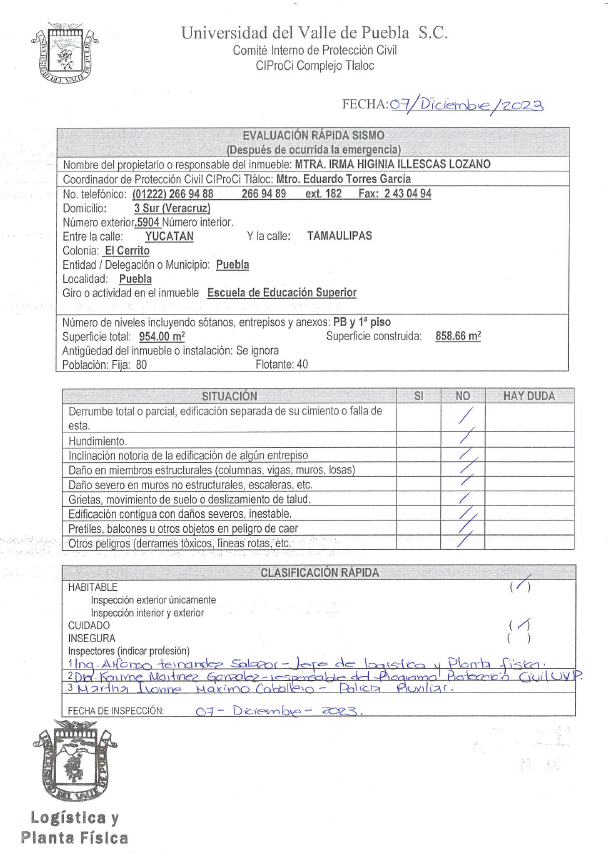 Universidad del Valle de Puebla S.C.
Comité Interno de Protección Civil
CIProCi Complejo Tlaloc
FECHA: 07/Diciembre/2023
EVALUACIÓN RÁPIDA SISMO
(Después de ocurrida la emergencia)
Nombre del propietario o responsable del inmueble: MTRA. IRMA HIGINIA ILLESCAS LOZANO
Coordinador de Protección Civil CIProCi Tláloc: Mtro. Eduardo Torres García
No. telefónico: (01222) 266 94 88 266 94 89 ext. 182 Fax: 2 43 04 94
Domicilio: 3 Sur (Veracruz)
Número exterior.5904 Número interior.
Entre la calle: YUCATAN Y la calle: TAMAULIPAS
Colonia: El Cerrito
Entidad / Delegación o Municipio: Puebla
Localidad: Puebla
Giro o actividad en el inmueble Escuela de Educación Superior
Número de niveles incluyendo sótanos, entrepisos y anexos: PB y 1ª piso
Superficie total: 954.00 m² Superficie construida: 858.66 m²
Antigüedad del inmueble o instalación: Se ignora
Población: Fija: 80 Flotante: 40
SITUACIÓN SI NO HAY DUDA
Derrumbe total o parcial, edificación separada de su cimiento o falla de
esta. /
Hundimiento. /
Inclinación notoria de la edificación de algún entrepiso /
Daño en miembros estructurales (columnas, vigas, muros, losas) /
Daño severo en muros no estructurales, escaleras, etc. /
Grietas, movimiento de suelo o deslizamiento de talud. /
Edificación contigua con daños severos, inestable. /
Pretiles, balcones u otros objetos en peligro de caer /
Otros peligros (derrames tóxicos, líneas rotas, etc. /
CLASIFICACIÓN RÁPIDA
HABITABLE (/)
Inspección exterior únicamente
Inspección interior y exterior
CUIDADO (/)
INSEGURA ( )
Inspectores (indicar profesión)
1 Ing. Alfonso Fernandez Salazar - Jefe de logística y Planta física.
2 Karime Martinez Gonzalez - responsable del Programa Protección Civil UVP.
3 Martha Ivonne Maximo Caballero - Policia Auxiliar.
FECHA DE INSPECCIÓN: 07 - Diciembre - 2023.
UNIVERSIDAD DEL VALLE DE PUEBLA
Logística y
Planta Física